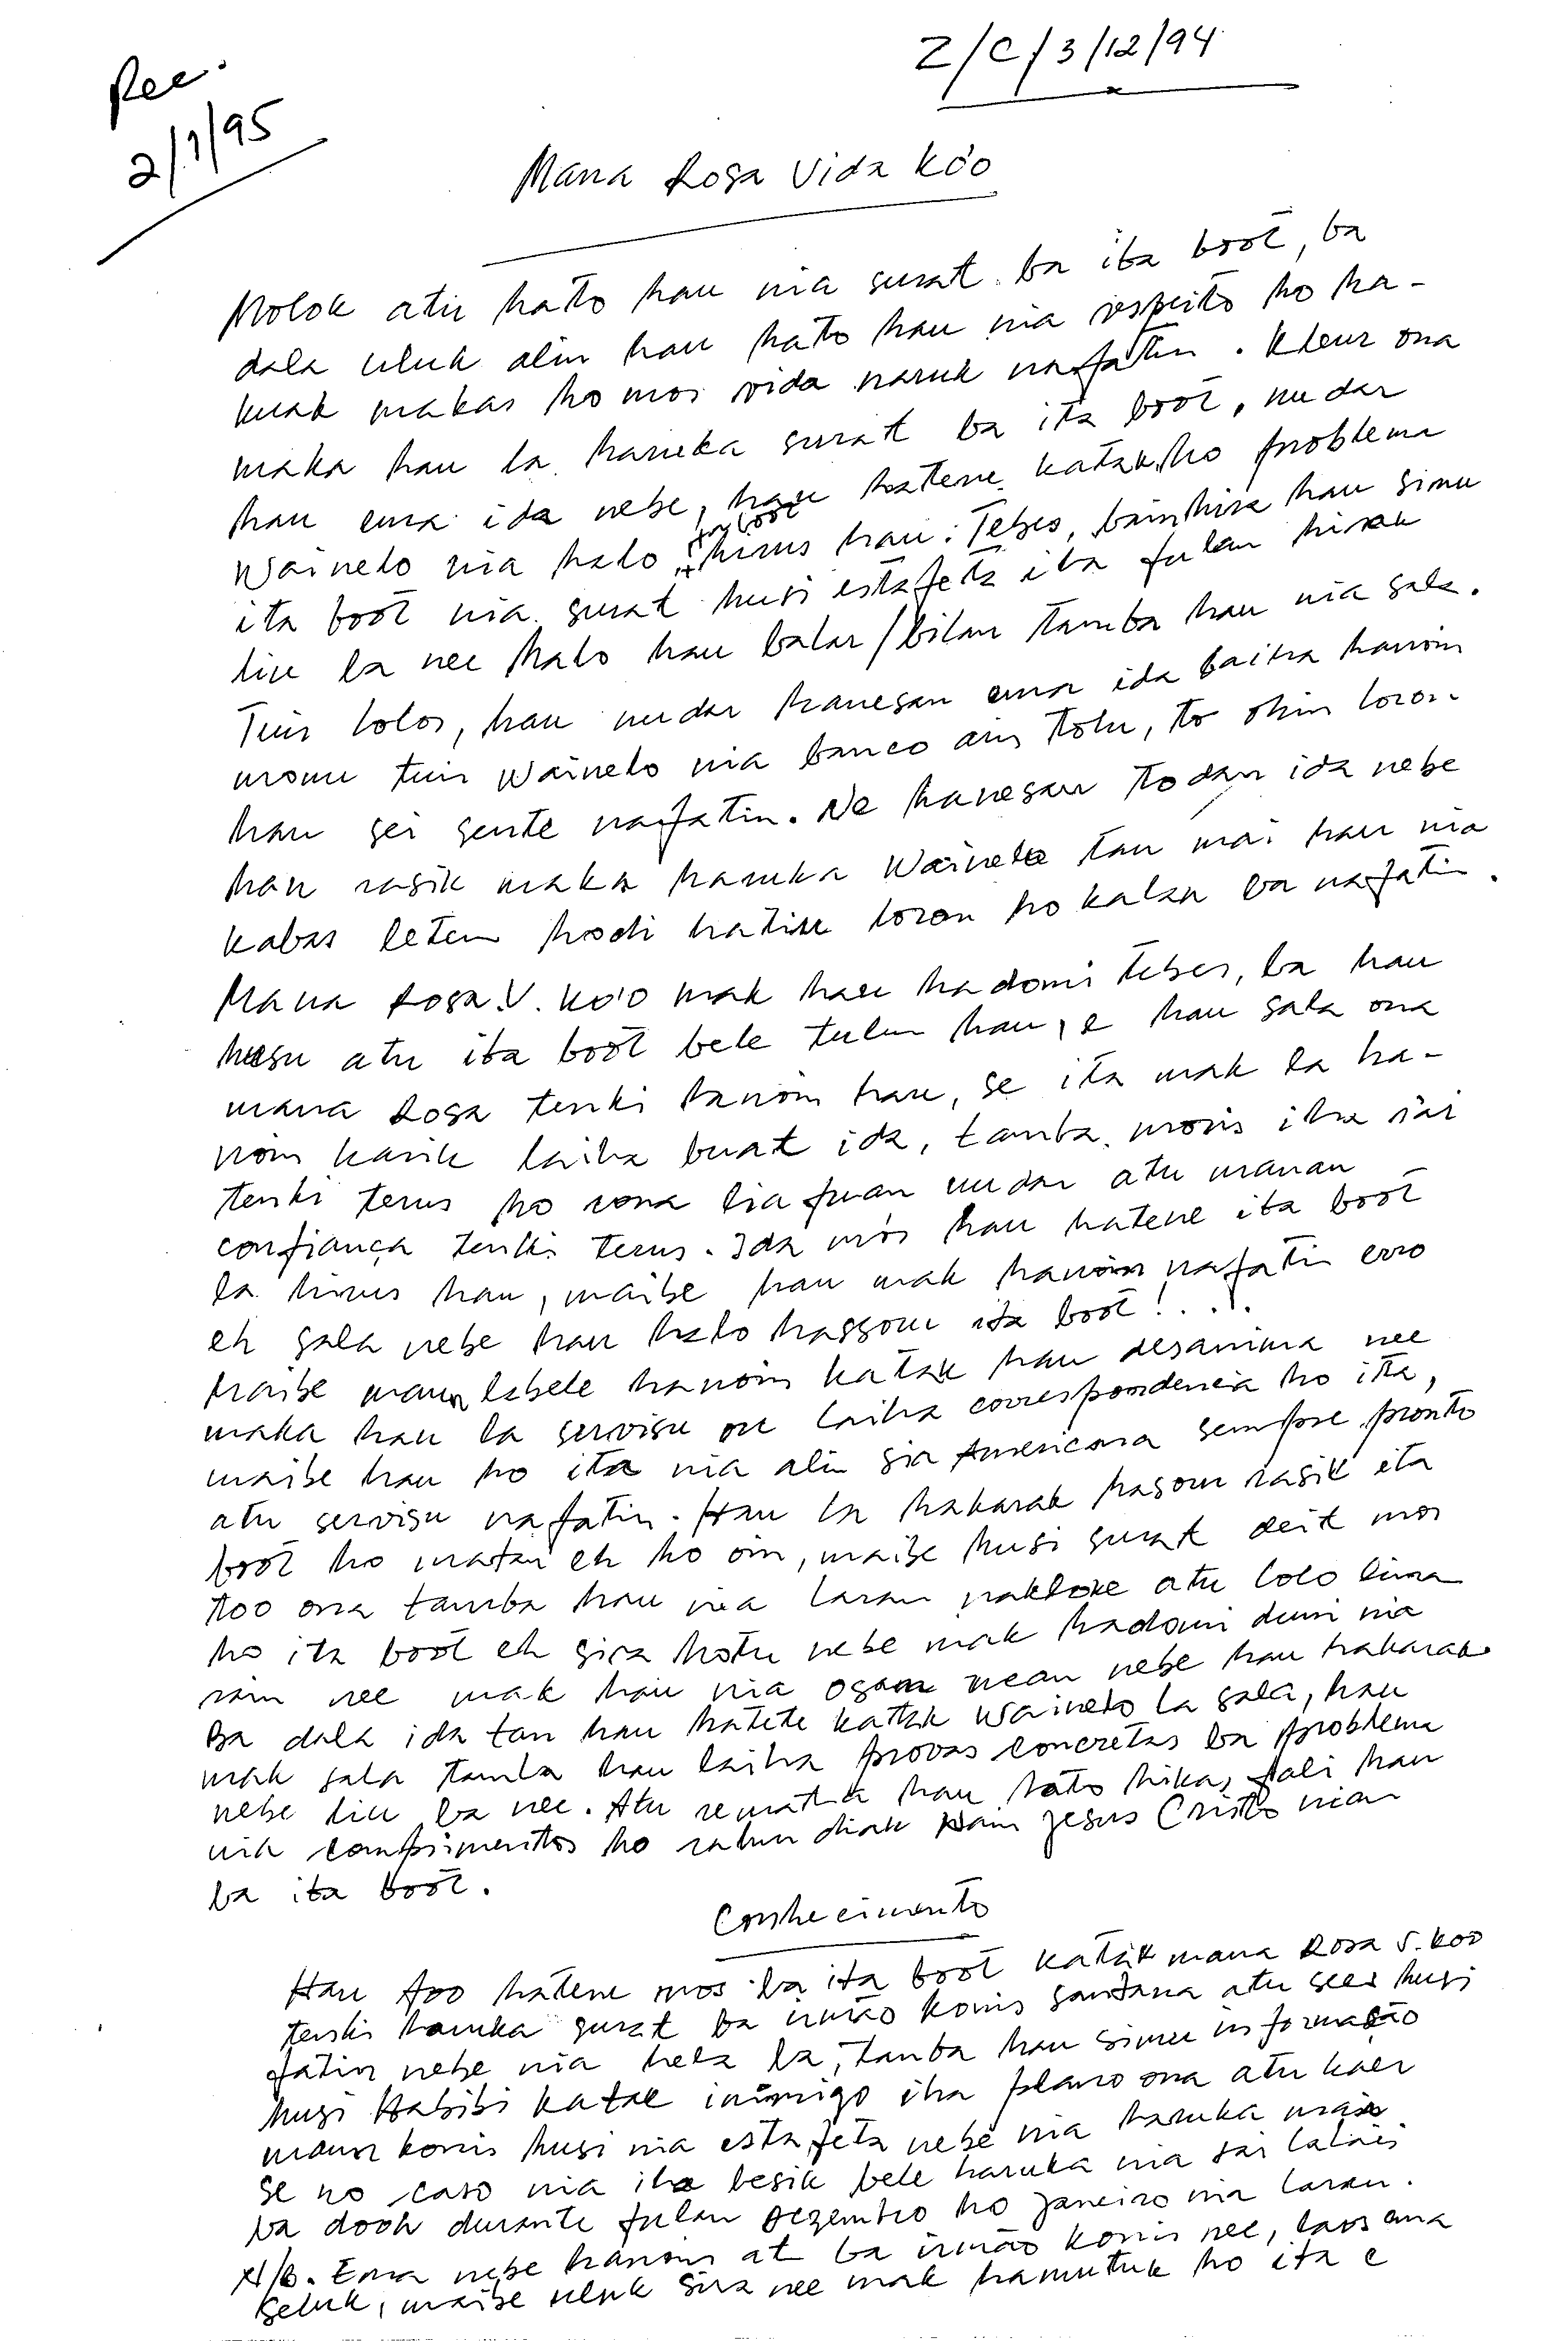 Z/C/3/12/94
Rec.
2/1/95
Mana Rosa Vida Ko'o
Molok atu hato hau nia surat ba ita boot, ba
dala uluk alin hau hato hau nia respeito ho ha-
kuak makas ho mos vida naruk nafatin. Kleur ona
maka hau la haruka surat ba ita boot, nudar
hau ema ida nebe, hau hatene katak, ho problema
Wainelo nia halo ita boot hirus hau. Tebes, bainhira hau simu
ita boot nia surat husi estafeta iha fulan hirak
liu ba nee halo hau balar/bilan tamba hau nia sala.
Tuir lolos, hau nudar hanesan ema ida baiha hanoin
monu tuir Wainelo nia banco ain tolu, to ohin loron
hau sei sente nafatin. Ne hanesan todan ida nebe
hau rasik maka haruka Wainelo tau mai hau nia
kabas leten hodi hatiu loron ho kalan ba nafatin.
Mana Rosa V. Ko'o mak hau hadomi tebes, ba hau
husu atu ita boot bele tulun hau, e hau sala ona
mana Rosa tenki hanoin hau, se ita mak la ha-
noin karik laiha buat ida, tamba moris iha rai
tenki terus ho rona lia fuan nudar atu manan
confiança tenki terus. Ida mós hau hatene ita boot
la hirus hau, maibe hau mak hanoin nafatin erro
eh sala nebe hau halo hassoru ita boot! . . !.
Maibe mana labele hanoin katak hau desanima nee
maka hau la servisu ou laiha correspondencia ho ita,
maibe hau ho ita nia alin sia Americana sempre pronto
atu servisu nafatin. Hau la hakarak hasoru rasik ita
boot ho matan eh ho oin, maibe husi surat deit mos
too ona tamba hau nia laran nakloke atu lolo lima
ho ita boot eh sira hotu nebe mak hadomi duni nia
rain nee mak hau nia osan mean nebe hau hakarak.
Ba dala ida tan hau hatete katak Wainelo la sala, hau
mak sala tamba hau laiha provas concretas ba problema
nebe liu ba nee. Atu remata hau hato hikas fali hau
nia comprimentos ho rahun diak Nain Jesus Cristo nian
ba ita boot.
Conhecimento
Hau foo hatene mos ba ita boot katak mana Rosa V. Koo
tenki haruka surat ba irmão Konis Santana atu sees husi
fatin nebe nia hela ba, tamba hau simu informação
husi Habibi katak inimigo iha plano ona atu kaer
maun konis husi nia estafeta nebe nia haruka mai
se no caso nia iha besik bele haruka nia sai lalais
ba dook durante fulan Dezembro ho Janeiro nia laran.
N/B. Ema nebe hanoin at ba irmão konis nee, laos ema
seluk, maibe uluk sira nee mak hamutuk ho ita e